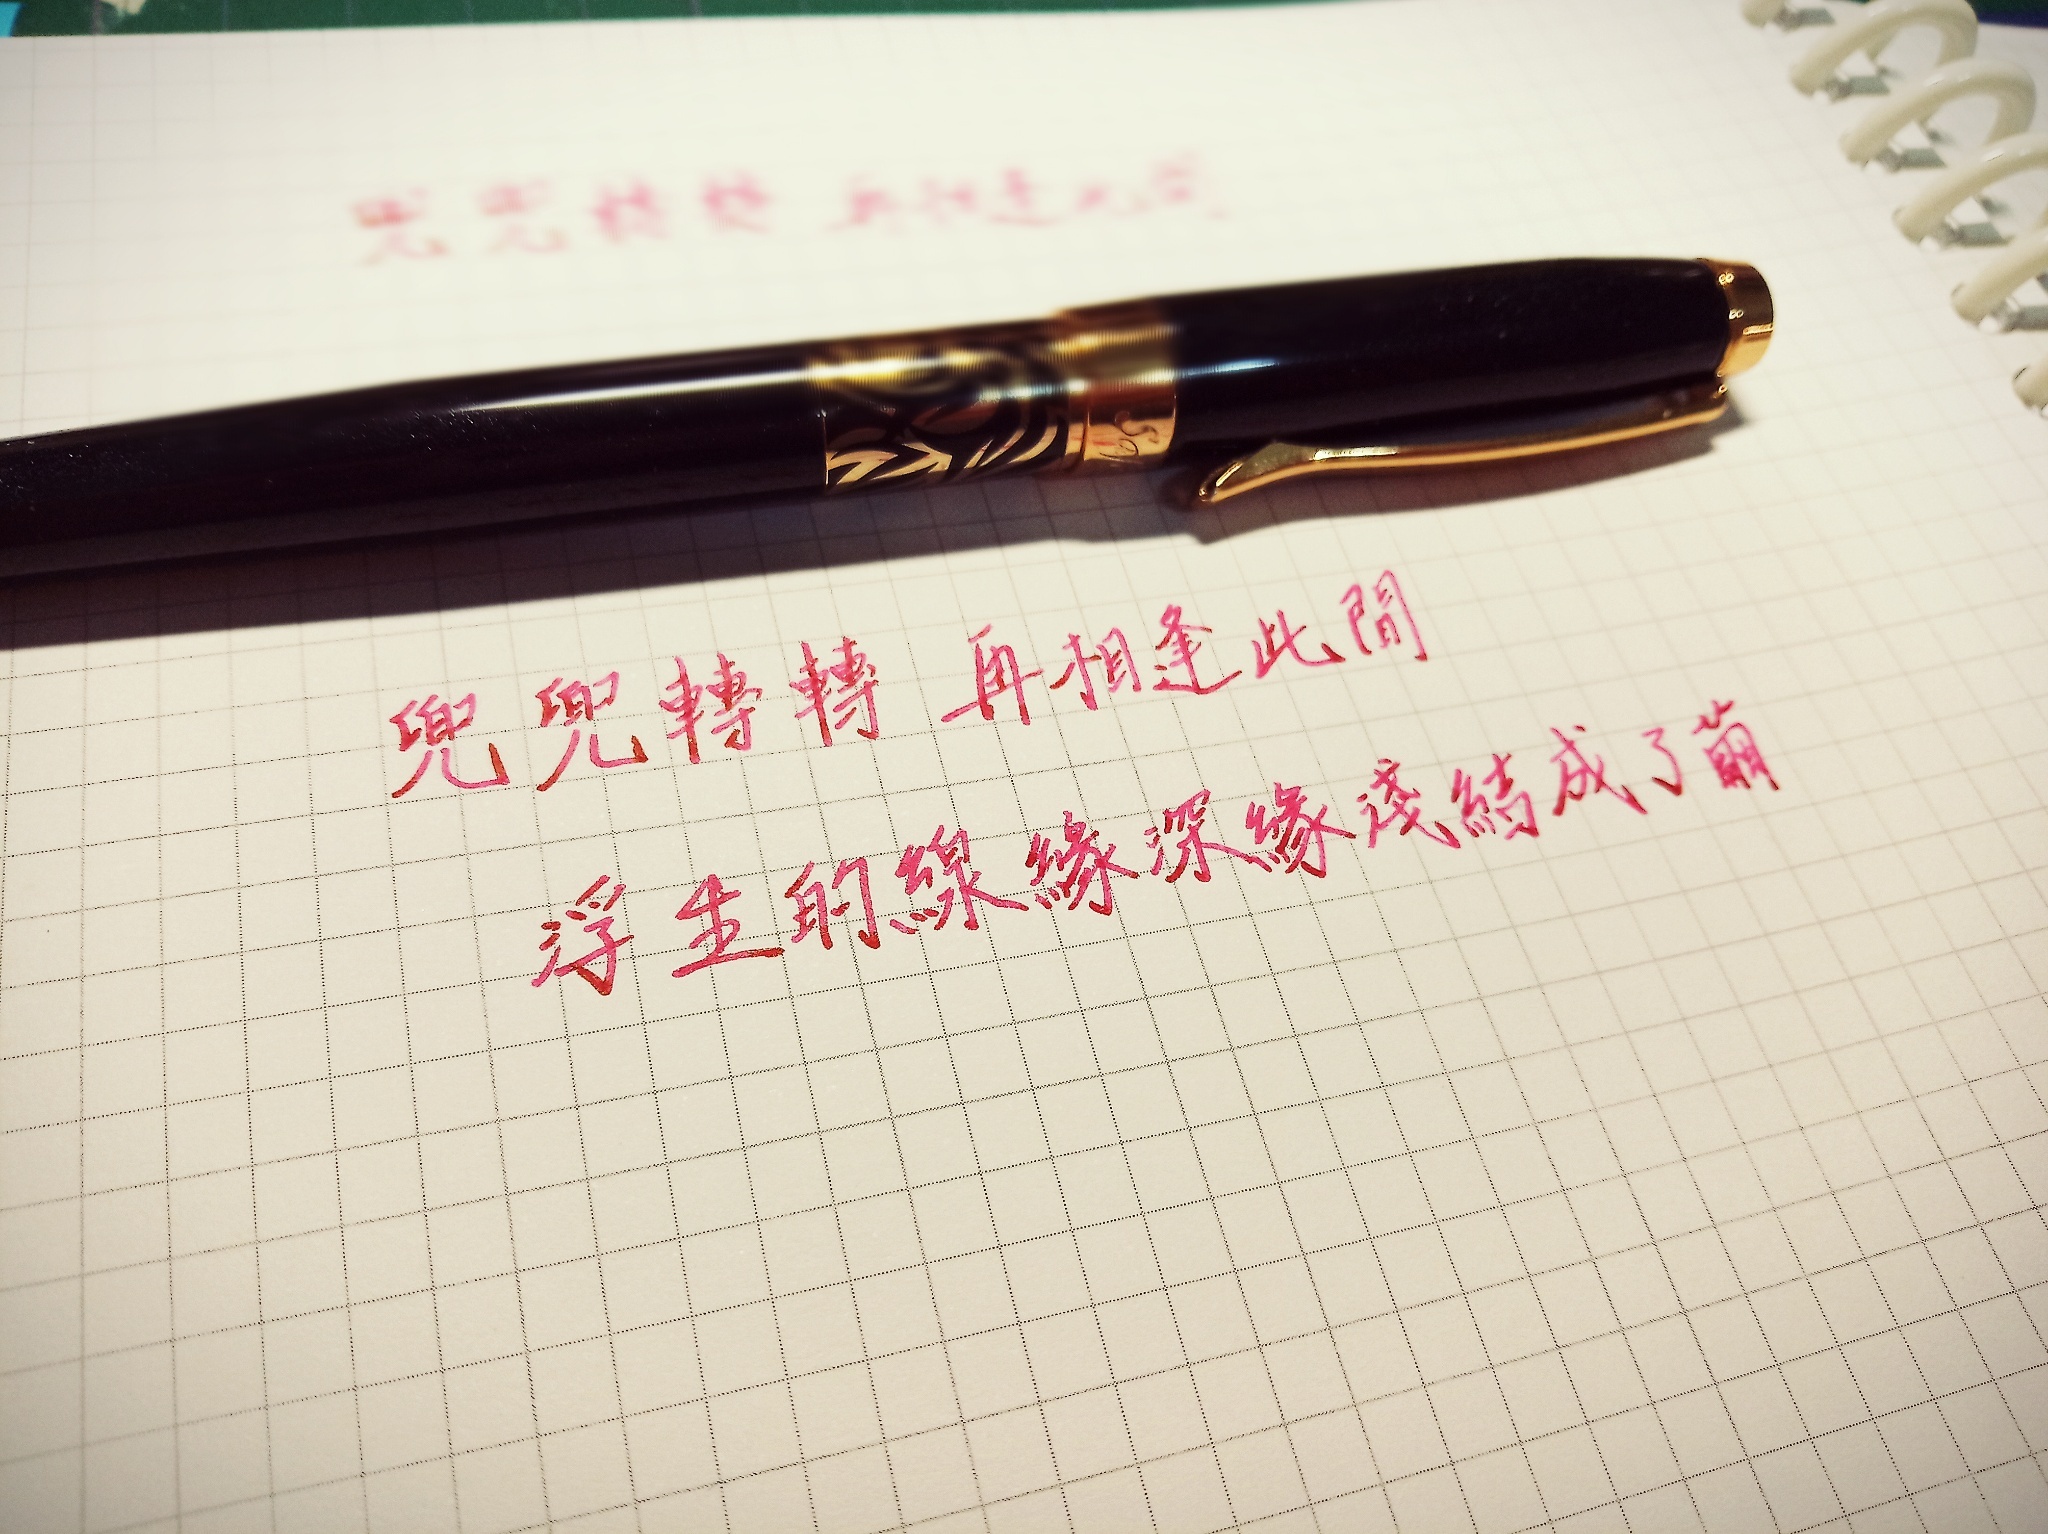 兜兜轉轉 再相逢此間
兜兜轉轉 再相逢此間
浮生的線緣深緣淺結成了繭